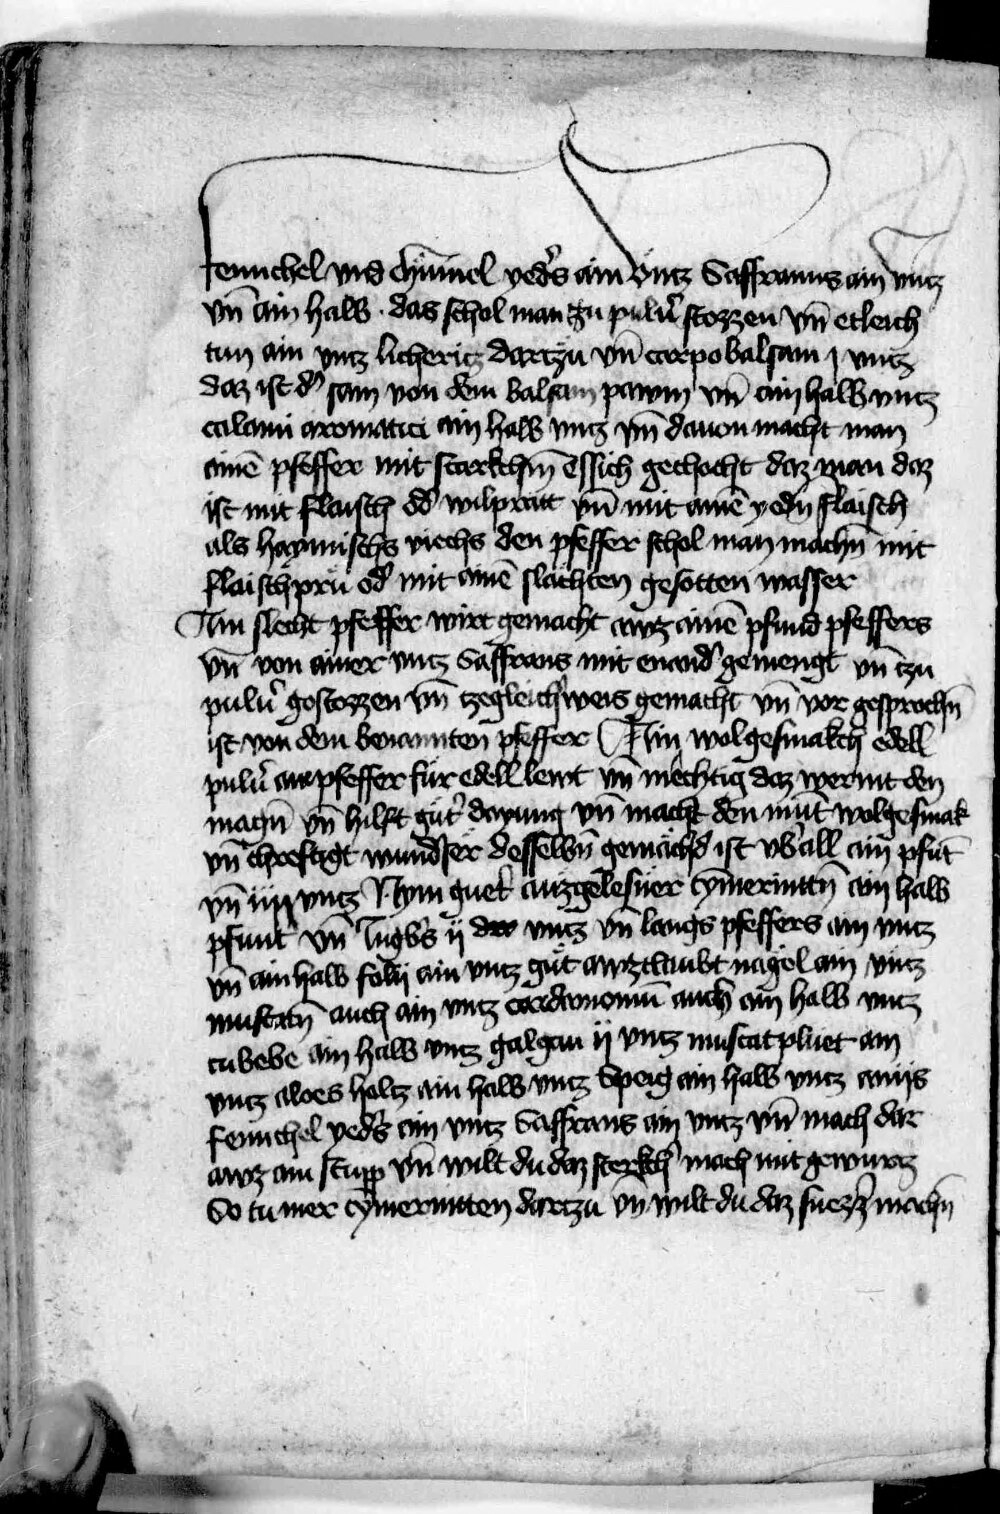 fennchel vnd chÿm̄el yed's ain vntz Saffranns ain vntz
vn̄ ain halb · das schol man zu pulu' stozzen vn̄ etleich
tun ain vntz licheritz dartzu vn̄ carpobalsam j vntz
daz ist d' sam von dem balsam pawm vn̄ ain halb vntz
calami aromatici ain halb vntz vn̄ dauon macht man
ainē pfeffer mit starkchm̄ essich gechocht daz man daz
ist mit flaisch od' wilpratt vn̄ mit ainē yedn̄ flaisch
als haymischs viechs den pfeffer schol man machn̄ mit
flaischprü od' mit ainē slächten gesotten wasser
Ain slecht pfeffer wirt gemacht awz ainē pfund pfeffers
vn̄ von ainer vntz Saffrans mit enand' gemengt vn̄ tzu
pulu' gestozzen vn̄ tzegleich'weis gemacht vn̄ vor gesprochn̄
ist von dem benannten pfeffer Ain wolgesmakch edell
pulu' am pfeffer für edell lewt vn̄ mēchtig daz wermt den
magn̄ vn̄ hilft gut' dayung vn̄ macht den mūt wolgesmak
vn̄ chreftigt wund'ser desselbn̄ gemächd' ist vb'all ain pfūt
vn̄ iiij vntz Nym guet' auzgelesner cymerinttn̄ ain halb
pfunt vn̄ Ingb's ij vntz vn̄ langs pfeffers ain vntz
vn̄ ain halb folij ain vntz gut awztlaubt nägel ain vntz
muskatn̄ auch ain vntz cardamomū auch ain halb vntz
cubebe ain halb vntz galgan ij vntz muscatpluet ain
vntz aloes holtz ain halb vntz Speig ain halb vntz anijs
fennchel yed's ain vntz Saffrans ain vntz vn̄ mach dar
awz ain stupp vn̄ wilt du daz sterkch' mach mit gewurtz
So tu mer cymerintten dartzu vn̄ wilt du daz suezz' machn̄